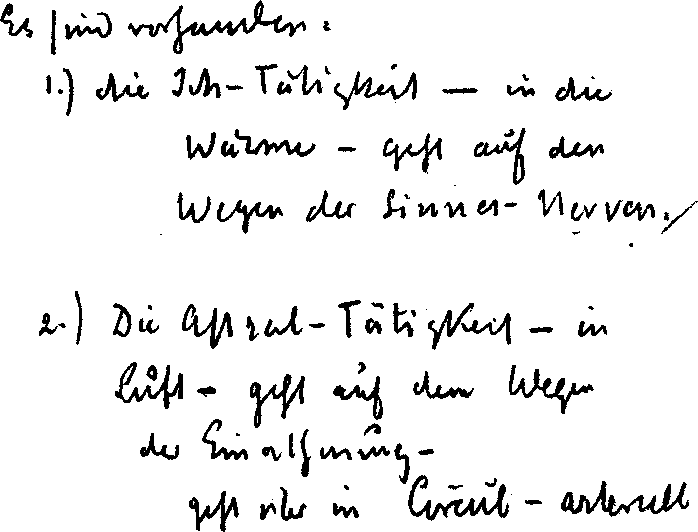 Es sind vorhanden:
1.) die Ich-Tätigkeit – in die
Wärme – geht auf den
Wegen der Sinnes-Nerven./
2.) Die Astral-Tätigkeit – in
Luft – geht auf dem Wegen
der Einathmung –
geht über in Circul – arteriell